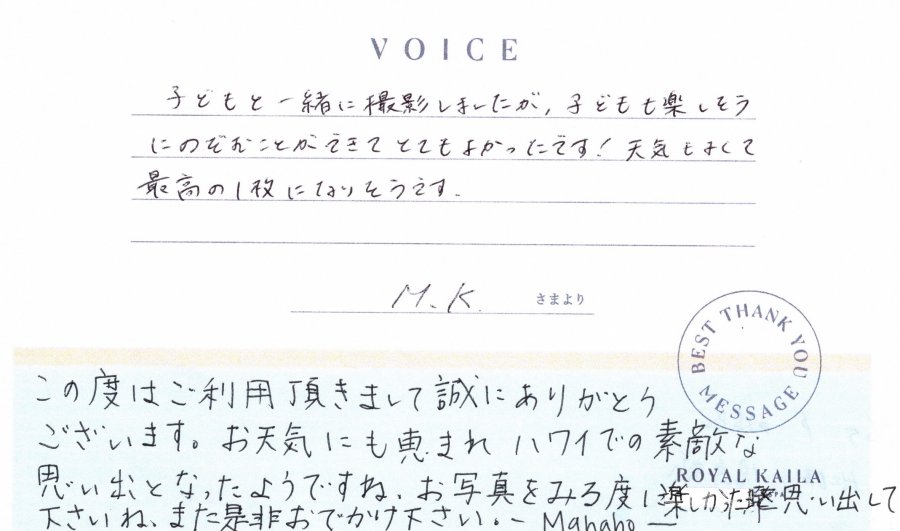 VOICE
子どもと一緒に撮影しましたが、子どもも楽しそう
にのぞむことができてとてもよかったです！天気もよくて
最高の1枚になりそうです.
M.K. さまより
BEST THANK YOU MESSAGE
この度はご利用頂きまして誠にありがとう
ございます。お天気にも恵まれ ハワイでの素敵な
思い出となったようですね、お写真をみる度に楽しかった 思い出して
ROYAL KAILA
下さいね、また是非おでかけ下さい。ー Manaho ー